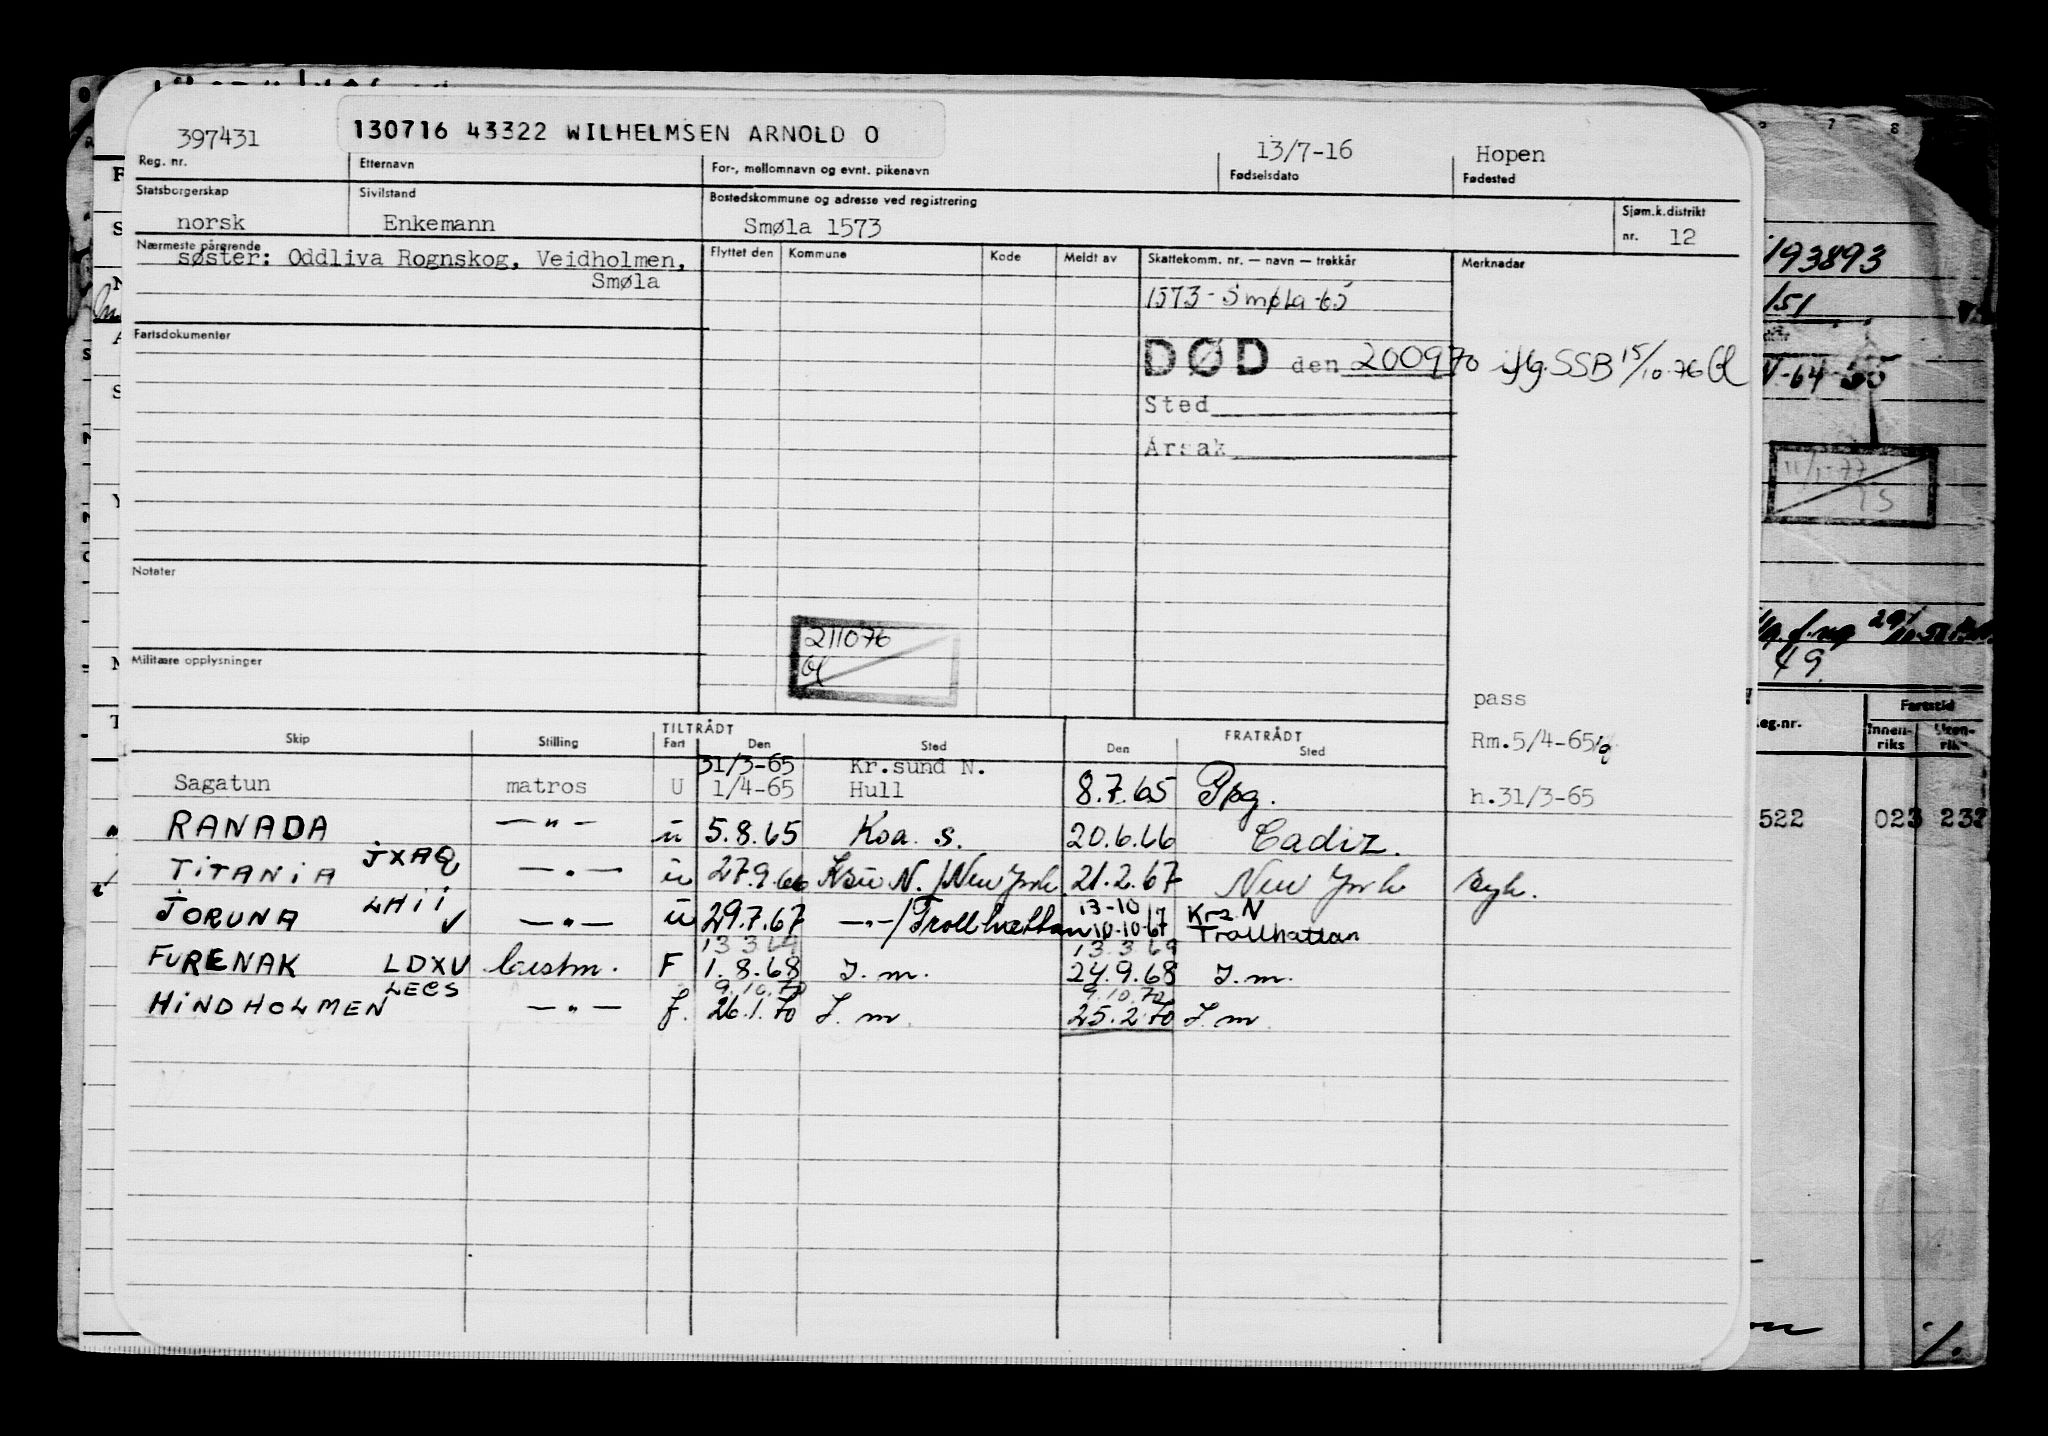 397431
130716 43322 WILHELMSEN ARNOLD O
13/7-16
Hopen
Reg. nr.
Etternavn
For-, mellomnavn og evnt. pikenavn
Fødselsdato
Fødested
Statsborgerskap
Sivilstand
Bostedskommune og adresse ved registrering
Sjøm.k.distrikt
norsk
Enkemann
Smøla 1573
nr. 12
Nærmeste pårørende
søster: Oddliva Rognskog, Veidholmen,
Smøla
Flyttet den
Kommune
Kode
Meldt av
Skattekomm. nr. — navn — trekkår
Merknader
1573 - Smøla-65
Fartsdokumenter
DØD den 200970 iflg. SSB 15/10-76
Sted
Årsak
Notater
211076
Militære opplysninger
pass
Rm.5/4-65
h.31/3-65
TILTRÅDT
FRATRÅDT
Skip
Stilling
Fart
Den
Sted
Den
Sted
31/3-65 Kr.sund N.
Sagatun matros U 1/4-65 Hull 8.7.65 Ppg.
RANADA —"— u 5.8.65 Koa. s. 20.6.66 Cadiz.
TITANIA JXAQ —"— u 27.9.66 Ksu N./New York 21.2.67 New York Syk.
13-10 Krs N
JORUNA LHII —"— u 29.7.67 —"—/Trollhættan 10-10-67 Trollhattan
13 3 69 13.3 69
FURENAK LDXV bestm. F 1.8.68 I.m. 24.9.68 I.m.
9.10.70 9.10.70
HINDHOLMEN LECS —"— f. 26.1.70 I.m. 25.2.70 I.m.
193893
151
11/1-77
49
Fartstid
eg.nr.
Innen-
riks
Uten-
riks
522 023 232